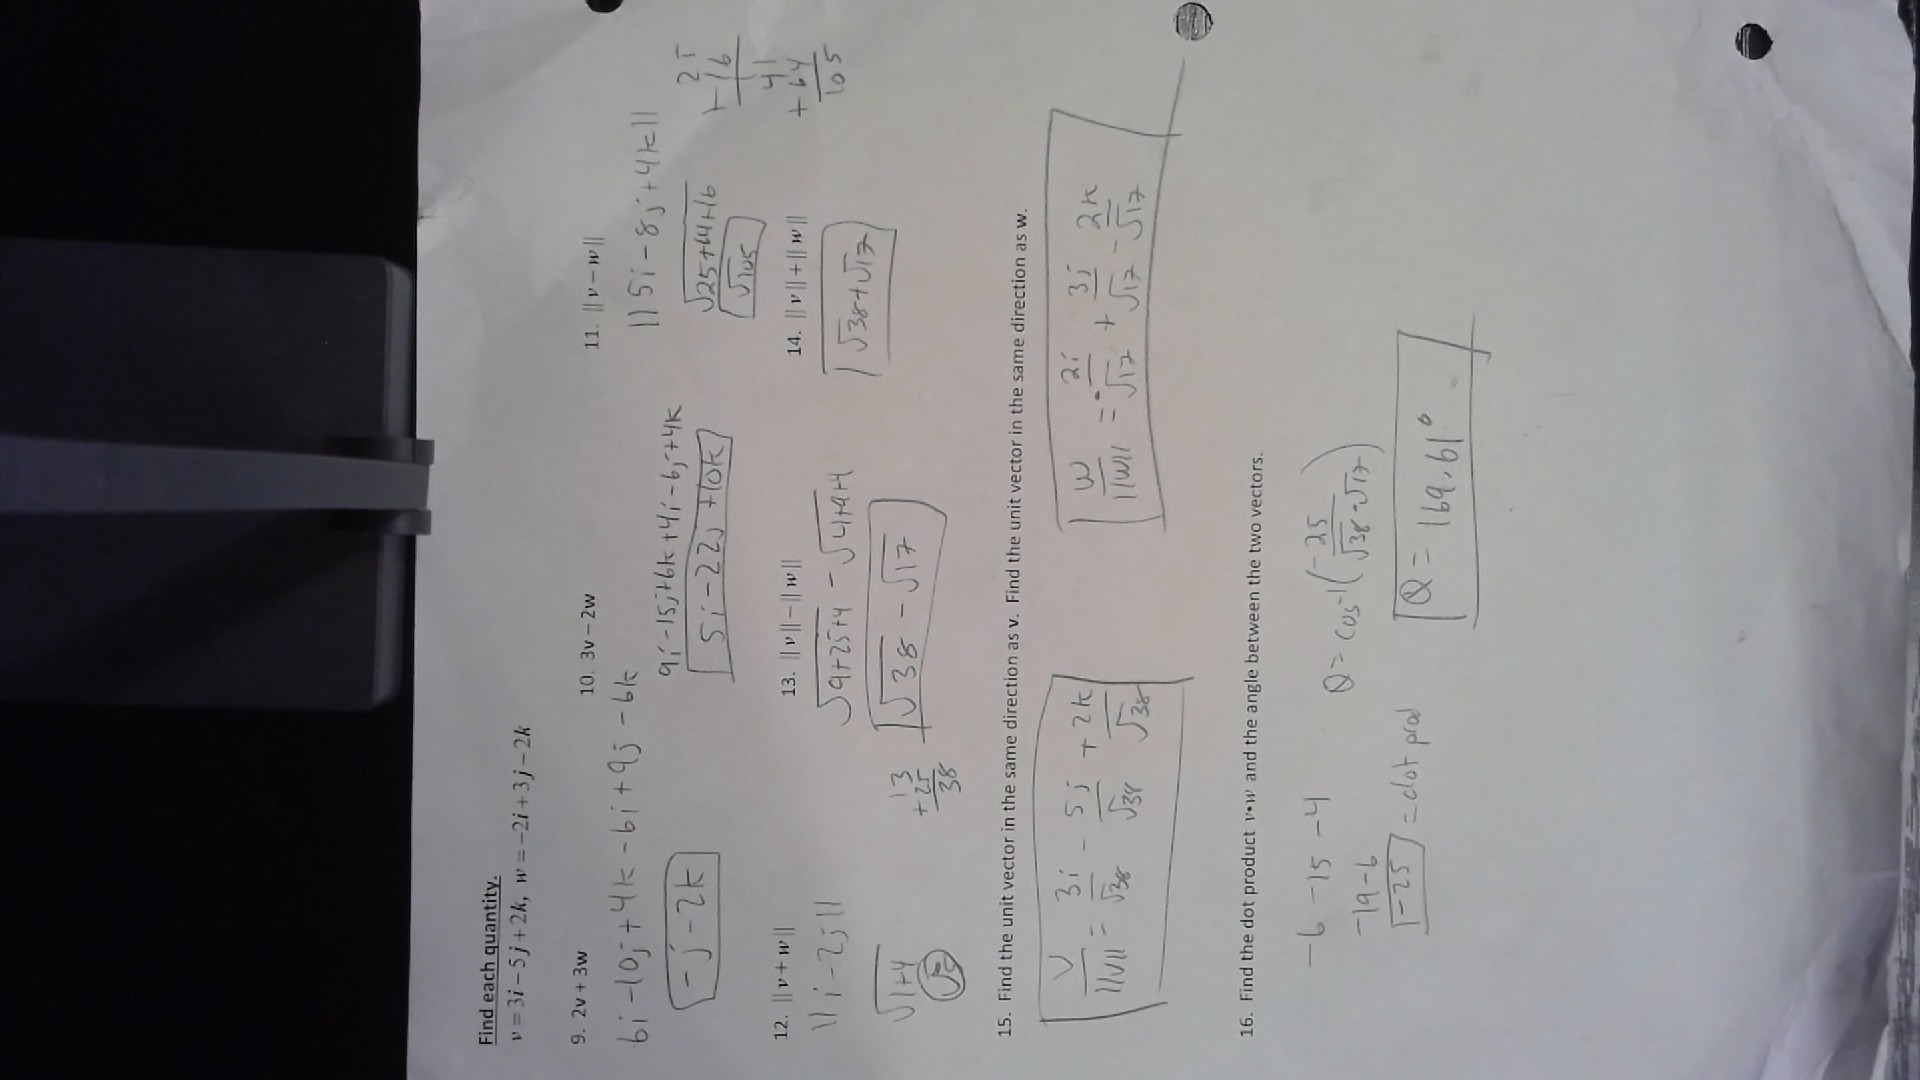 Find each quantity.
v = 3i – 5j + 2k, w = –2i + 3j – 2k
9. 2v + 3w
10. 3v – 2w
11. || v – w ||
6i -10j +4k -6i +9j -6k
-j -2k
9i -15j +6k +4i -6j +4k
5i -22j +10k
||5i -8j +4k||
√25+64+16
√105
25
+16
41
+64
105
12. || v + w ||
13. || v || – || w ||
14. || v || + || w ||
||i -2j||
√1+4
√5
√9+25+4 - √4+9+4
√38 - √17
13
+25
38
√38 + √17
15. Find the unit vector in the same direction as v. Find the unit vector in the same direction as w.
v/||v|| = 3i/√38 - 5j/√38 + 2k/√38
w/||w|| = -2i/√17 + 3j/√17 - 2k/√17
16. Find the dot product v•w and the angle between the two vectors.
-6 -15 -4
-19 -6
-25 = dot prod
θ = cos⁻¹(-25/√38·√17)
θ = 169.61°